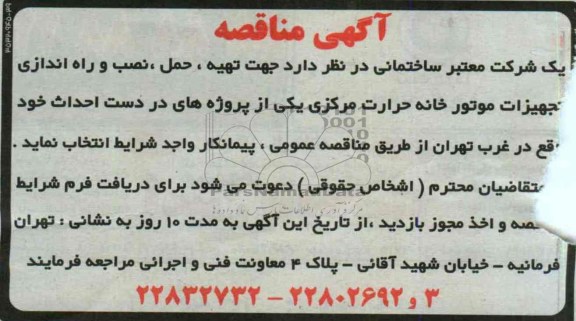 آگهی مناقصه
یک شرکت معتبر ساختمانی در نظر دارد جهت تهیه ، حمل ،نصب و راه اندازی
تجهیزات موتور خانه حرارت مرکزی یکی از پروژه های در دست احداث خود
قع در غرب تهران از طریق مناقصه عمومی ، پیمانکار واجد شرایط انتخاب نماید .
متقاضیان محترم ( اشخاص حقوقی ) دعوت می شود برای دریافت فرم شرایط
صه و اخذ مجوز بازدید ،از تاریخ این آگهی به مدت ۱۰ روز به نشانی : تهران
فرمانیه - خیابان شهید آقائی - پلاک ۴ معاونت فنی و اجرائی مراجعه فرمایند
۳ و ۲۲۸۰۲۶۹۲ - ۲۲۸۳۲۷۳۲
ParsNamadData